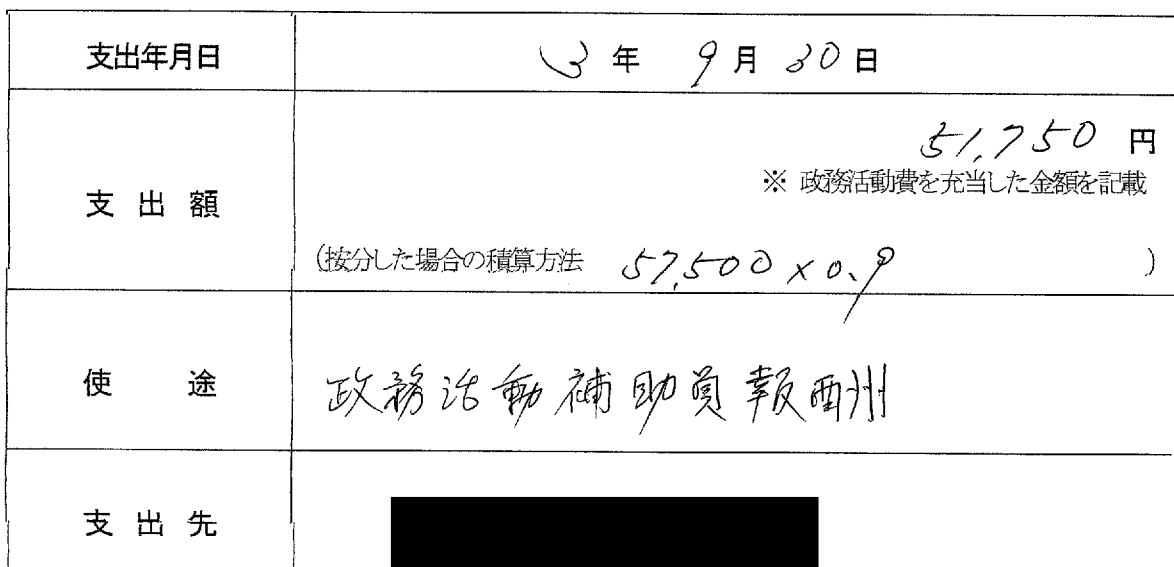 支出年月日 3年 9月 30日
51,750 円
※ 政務活動費を充当した金額を記載
支出額
(按分した場合の積算方法 57,500×0.9 )
使途 政務活動補助員報酬
支出先